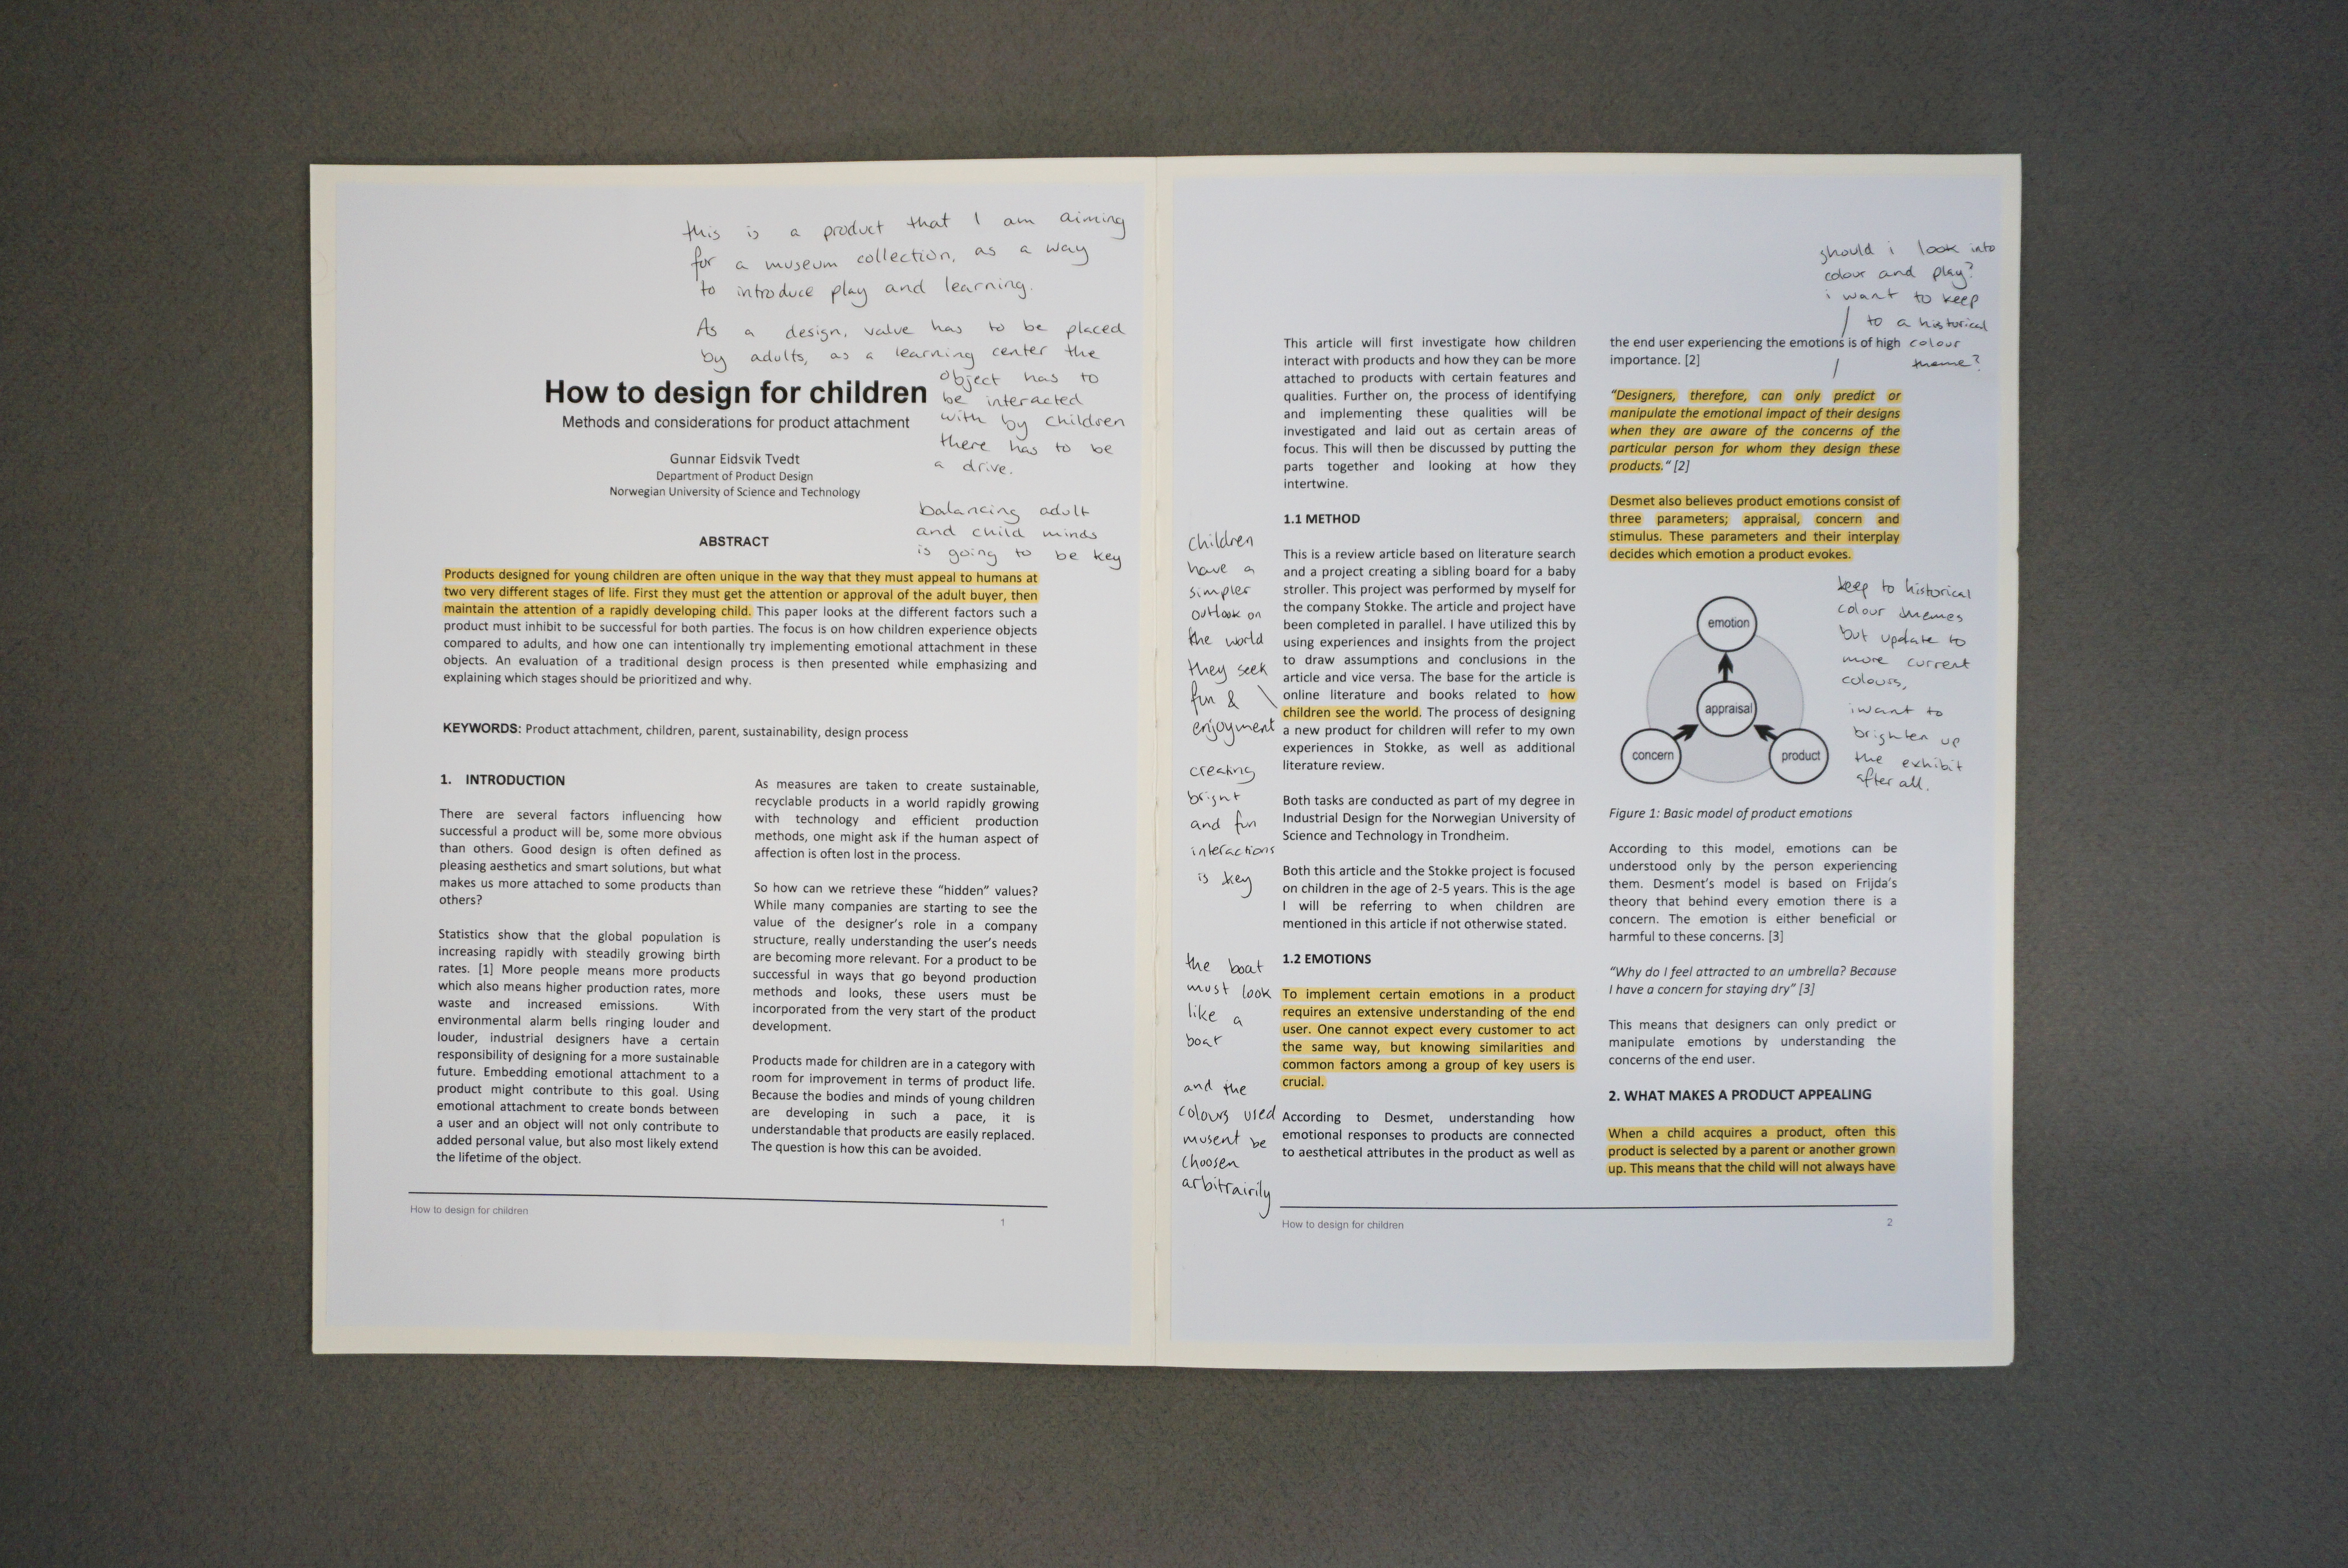 this is a product that I am aiming
for a museum collection, as a way
to introduce play and learning.
As a design, value has to be placed
by adults, as a learning center the
object has to
be interacted
with by children
there has to be
a drive.
How to design for children
Methods and considerations for product attachment
Gunnar Eidsvik Tvedt
Department of Product Design
Norwegian University of Science and Technology
balancing adult
and child minds
is going to be key
ABSTRACT
Products designed for young children are often unique in the way that they must appeal to humans at
two very different stages of life. First they must get the attention or approval of the adult buyer, then
maintain the attention of a rapidly developing child. This paper looks at the different factors such a
product must inhibit to be successful for both parties. The focus is on how children experience objects
compared to adults, and how one can intentionally try implementing emotional attachment in these
objects. An evaluation of a traditional design process is then presented while emphasizing and
explaining which stages should be prioritized and why.
KEYWORDS: Product attachment, children, parent, sustainability, design process
1. INTRODUCTION
There are several factors influencing how
successful a product will be, some more obvious
than others. Good design is often defined as
pleasing aesthetics and smart solutions, but what
makes us more attached to some products than
others?
Statistics show that the global population is
increasing rapidly with steadily growing birth
rates. [1] More people means more products
which also means higher production rates, more
waste and increased emissions. With
environmental alarm bells ringing louder and
louder, industrial designers have a certain
responsibility of designing for a more sustainable
future. Embedding emotional attachment to a
product might contribute to this goal. Using
emotional attachment to create bonds between
a user and an object will not only contribute to
added personal value, but also most likely extend
the lifetime of the object.
As measures are taken to create sustainable,
recyclable products in a world rapidly growing
with technology and efficient production
methods, one might ask if the human aspect of
affection is often lost in the process.
So how can we retrieve these “hidden” values?
While many companies are starting to see the
value of the designer’s role in a company
structure, really understanding the user’s needs
are becoming more relevant. For a product to be
successful in ways that go beyond production
methods and looks, these users must be
incorporated from the very start of the product
development.
Products made for children are in a category with
room for improvement in terms of product life.
Because the bodies and minds of young children
are developing in such a pace, it is
understandable that products are easily replaced.
The question is how this can be avoided.
How to design for children
1
children
have a
simpler
outlook on
the world
they seek
fun &
enjoyment
creating
bright
and fun
interactions
is key
the boat
must look
like a
boat
and the
colours used
musent be
choosen
arbitrairily
This article will first investigate how children
interact with products and how they can be more
attached to products with certain features and
qualities. Further on, the process of identifying
and implementing these qualities will be
investigated and laid out as certain areas of
focus. This will then be discussed by putting the
parts together and looking at how they
intertwine.
1.1 METHOD
This is a review article based on literature search
and a project creating a sibling board for a baby
stroller. This project was performed by myself for
the company Stokke. The article and project have
been completed in parallel. I have utilized this by
using experiences and insights from the project
to draw assumptions and conclusions in the
article and vice versa. The base for the article is
online literature and books related to how
children see the world. The process of designing
a new product for children will refer to my own
experiences in Stokke, as well as additional
literature review.
Both tasks are conducted as part of my degree in
Industrial Design for the Norwegian University of
Science and Technology in Trondheim.
Both this article and the Stokke project is focused
on children in the age of 2-5 years. This is the age
I will be referring to when children are
mentioned in this article if not otherwise stated.
1.2 EMOTIONS
To implement certain emotions in a product
requires an extensive understanding of the end
user. One cannot expect every customer to act
the same way, but knowing similarities and
common factors among a group of key users is
crucial.
According to Desmet, understanding how
emotional responses to products are connected
to aesthetical attributes in the product as well as
should i look into
colour and play?
i want to keep
to a historical
colour
theme?
the end user experiencing the emotions is of high
importance. [2]
“Designers, therefore, can only predict or
manipulate the emotional impact of their designs
when they are aware of the concerns of the
particular person for whom they design these
products.“ [2]
Desmet also believes product emotions consist of
three parameters; appraisal, concern and
stimulus. These parameters and their interplay
decides which emotion a product evokes.
emotion
appraisal
concern
product
keep to historical
colour themes
but update to
more current
colours,
i want to
brighten up
the exhibit
after all.
Figure 1: Basic model of product emotions
According to this model, emotions can be
understood only by the person experiencing
them. Desment’s model is based on Frijda’s
theory that behind every emotion there is a
concern. The emotion is either beneficial or
harmful to these concerns. [3]
“Why do I feel attracted to an umbrella? Because
I have a concern for staying dry” [3]
This means that designers can only predict or
manipulate emotions by understanding the
concerns of the end user.
2. WHAT MAKES A PRODUCT APPEALING
When a child acquires a product, often this
product is selected by a parent or another grown
up. This means that the child will not always have
How to design for children
2